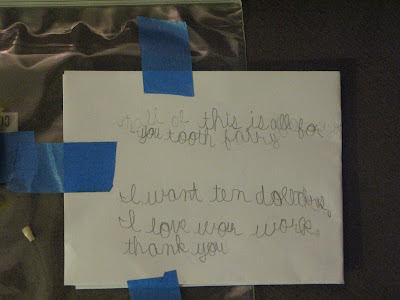 this is all for
you tooth fairy
I want ten
I love your work
thank you